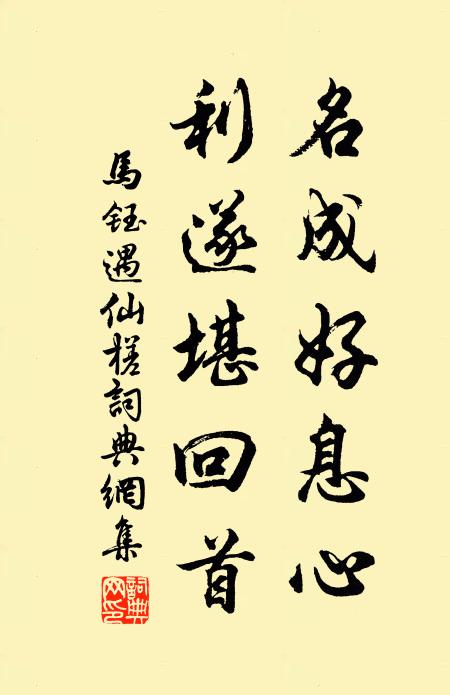 名成好息心
利遂堪回首
馬鈺遇仙槎詞典網集
詞典網印